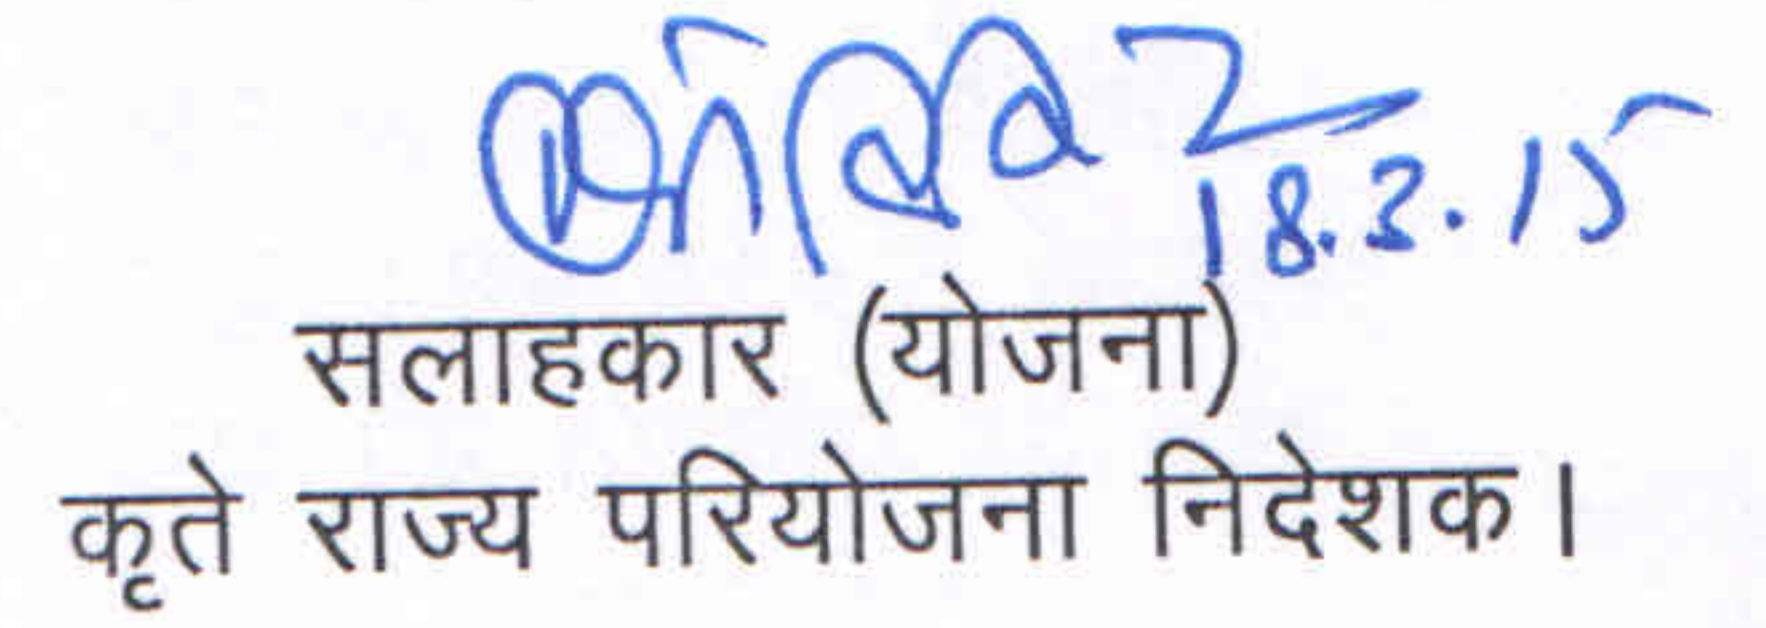 18.2.15
सलाहकार (योजना)
कृते राज्य परियोजना निदेशक।